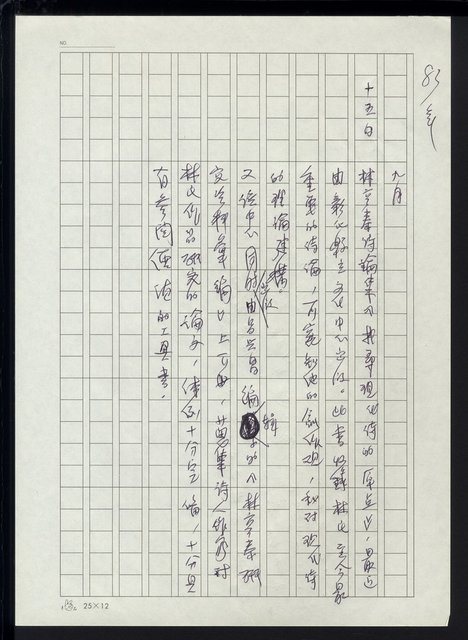 83年
九月
十五日
林亨泰詩論集《找尋現代詩的原点》，最近
由彰化縣立文化中心出版。此書收錄林氏至今最
重要的詩論，可窺知他的創作觀，和对现代詩
的理論建構。
又該中心同時出版由呂興昌編輯的《林亨泰研
究資料彙編》上下冊，蒐集詩人作家对
林氏作品研究的論文，体例十分完備，十分具
有參閱價值的工具書。
NO.
25×12